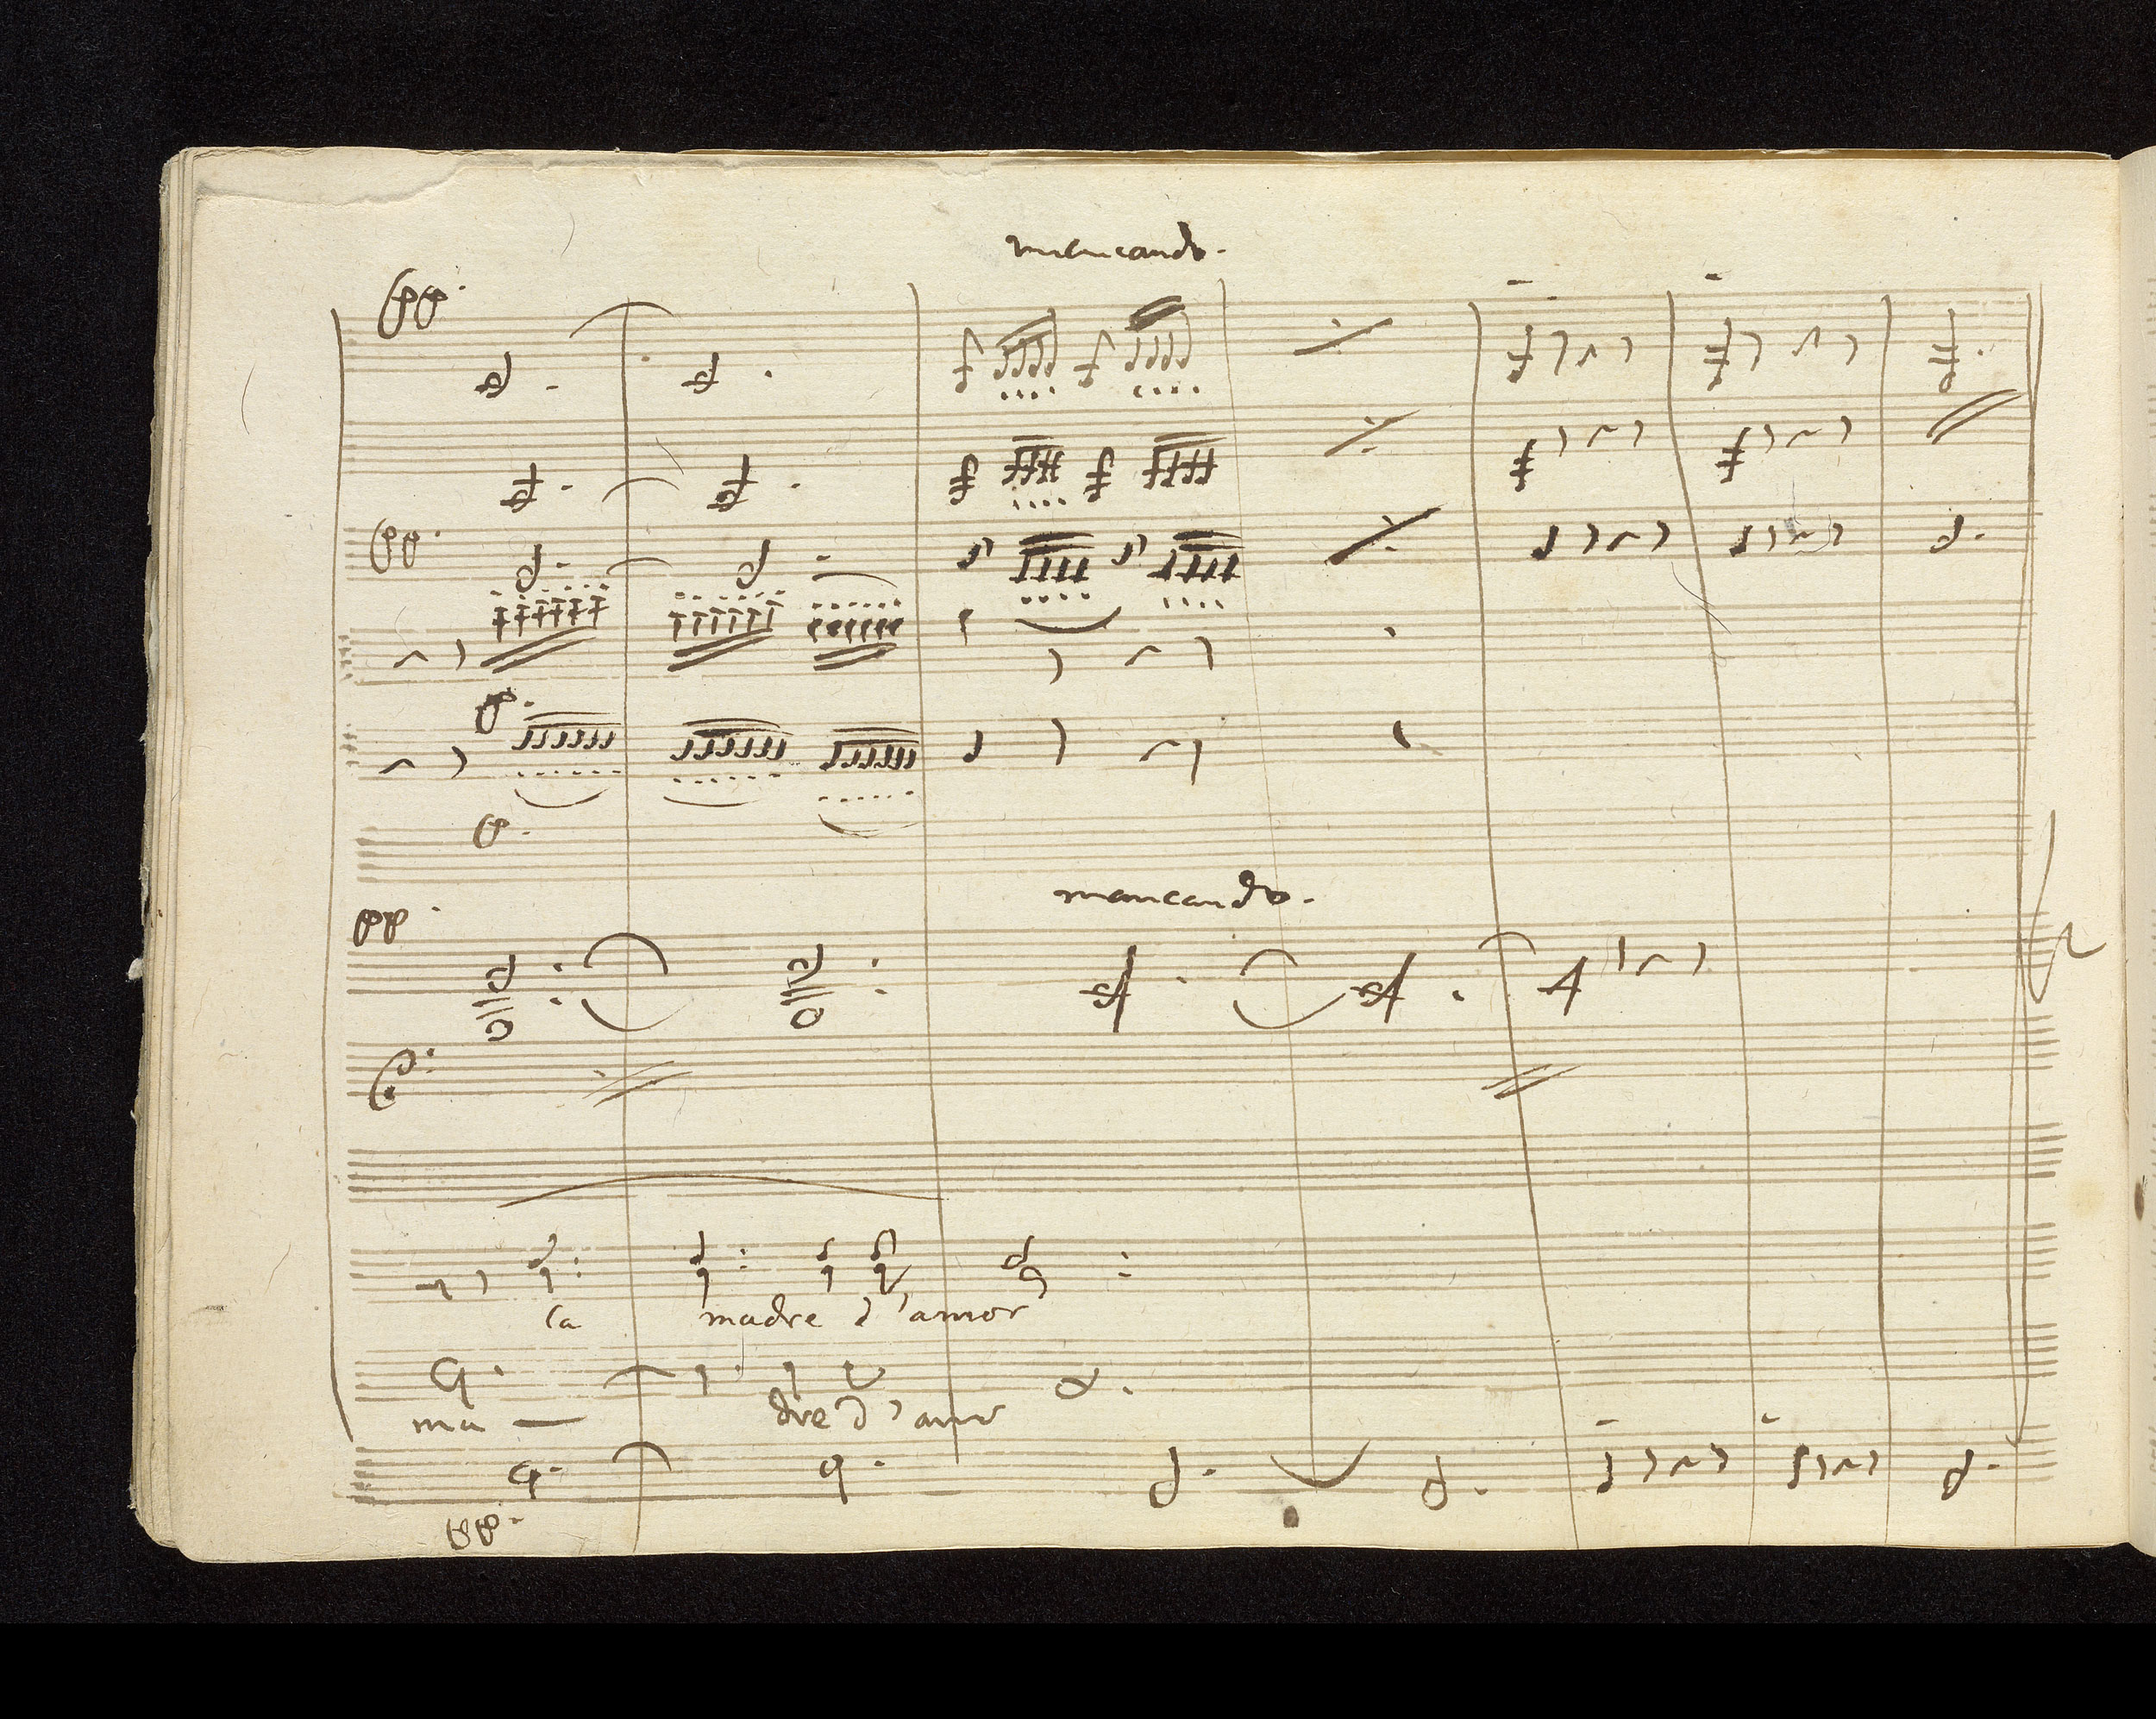 mancando.
pp.
pp.
p.
p.
mancando.
pp.
la madre d'amor
ma — dre d'amor
pp.